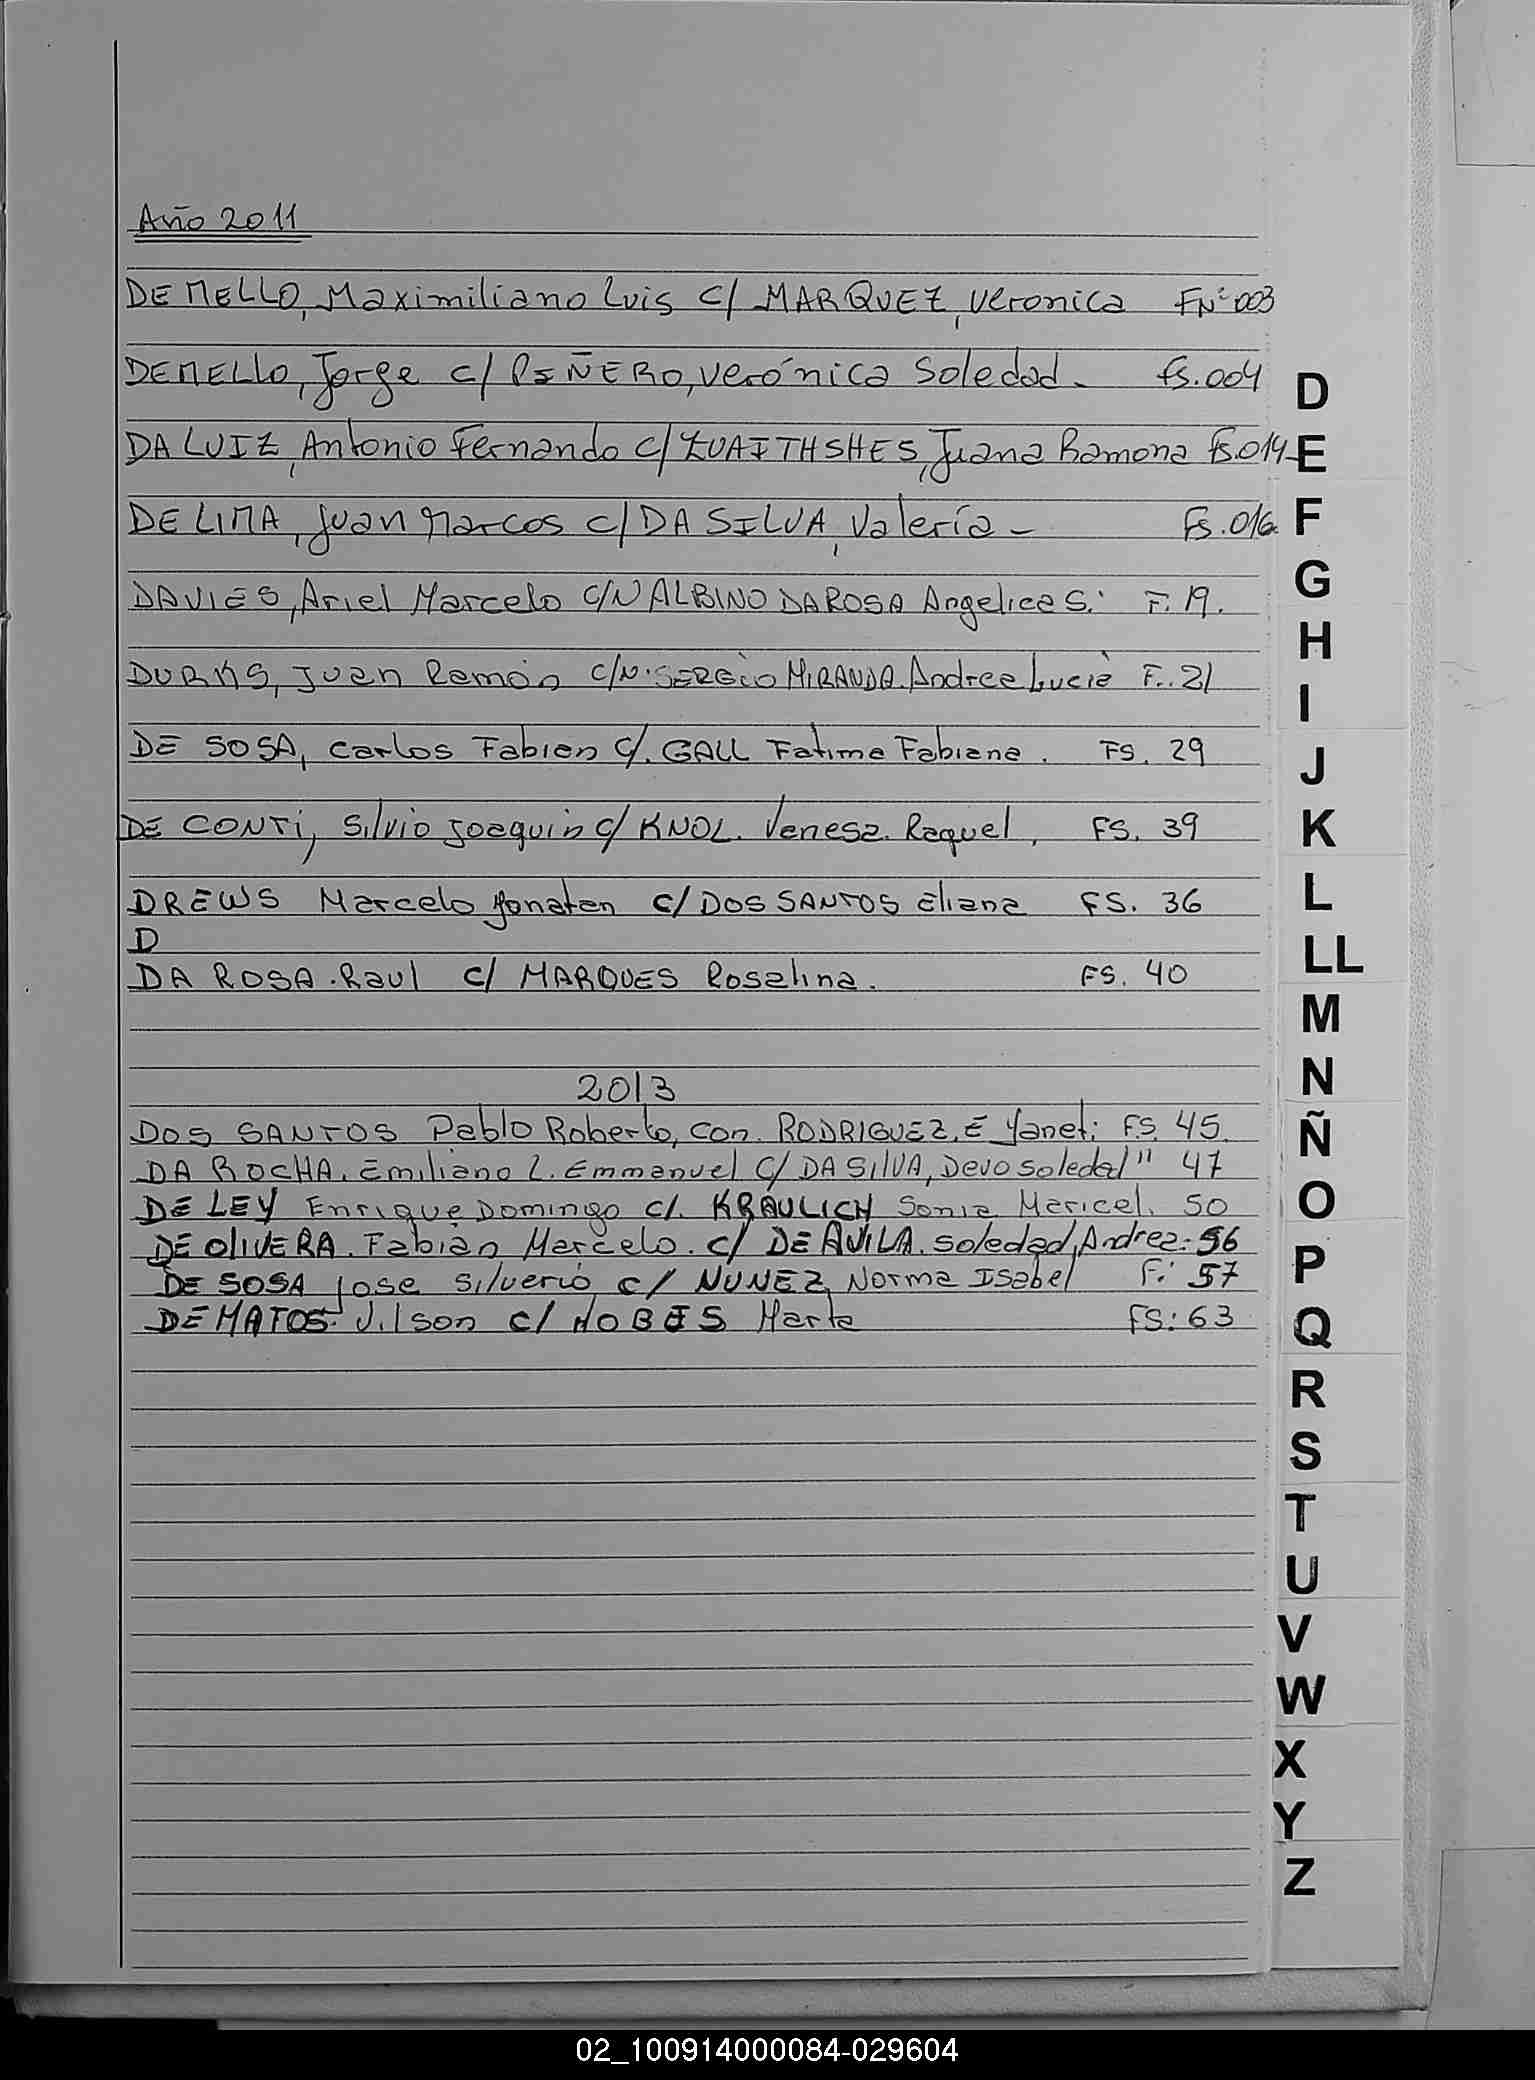 Año 2011
DE MELLO, Maximiliano Luis C/ MARQUEZ, Veronica FNº 003
DEMELLO, Jorge C/ PIÑERO, Verónica Soledad - fs. 004
DA LUIZ, Antonio Fernando C/ ZUAITHSHES, Juana Ramona fs. 014
DE LIMA, Juan Marcos C/ DA SILVA, Valería - Fs. 016
DAVIES, Ariel Marcelo C/N ALBINO DA ROSA Angelica S. F. 19.
DURKS, Juan Ramón C/N. SERGIO MIRANDA. Andrea Lucia F. 21
DE SOSA, Carlos Fabian C/. GALL Fatima Fabiana. FS. 29
DE CONTi, Silvio Joaquin C/ KNOL. Vanesa. Raquel, FS. 39
DREWS Marcelo Jonatan C/ DOS SANTOS Eliana FS. 36
D
DA ROSA. Raul C/ MARQUES Rosalina. FS. 40
2013
DOS SANTOS Pablo Roberto, con. RODRIGUEZ. E Yanet: FS. 45.
DA ROCHA. Emiliano L. Emmanuel C/ DA SILVA, Soledad " 47
DE LEY Enrique Domingo C/. KRAULICH Sonia Maricel. 50
DE OLIVERA. Fabian Marcelo. C/ DE AVILA. Soledad, Andrea: 56
DE SOSA Jose Silverio C/ NUNEZ, Norma Isabel F: 57
DE MATOS. Jilson C/ Marta FS: 63
D
E
F
G
H
I
J
K
L
LL
M
N
Ñ
O
P
Q
R
S
T
U
V
W
X
Y
Z
02_100914000084-029604